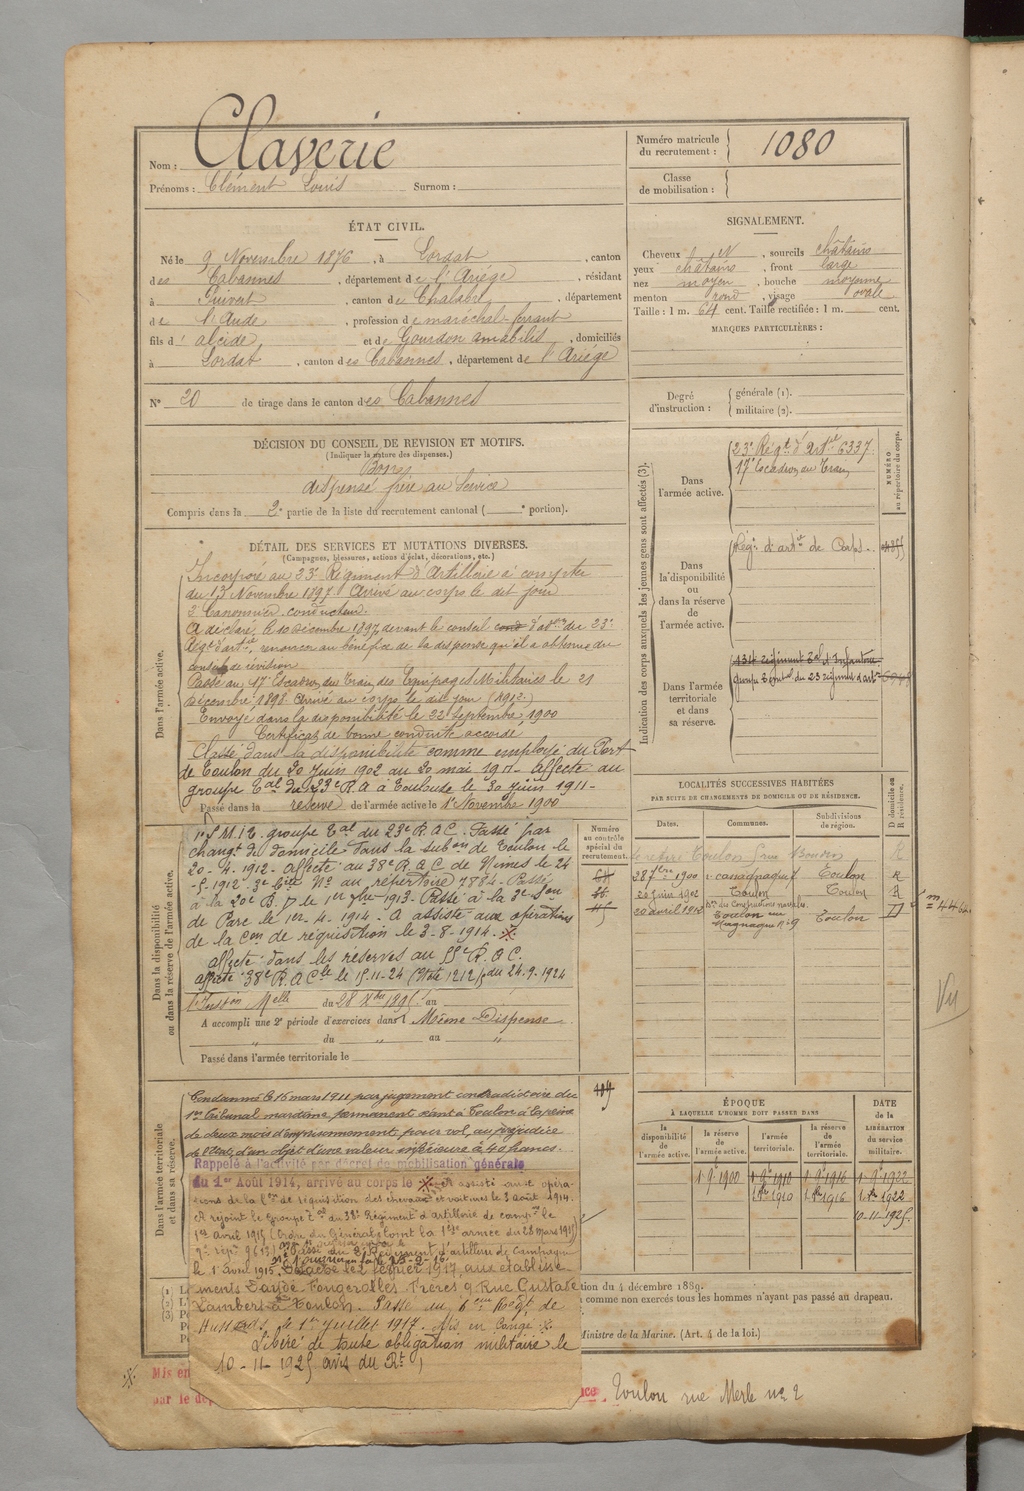 Nom : Claverie
Prénoms : Clément Louis Surnom :
Numéro matricule du recrutement : 1080
Classe de mobilisation :
ÉTAT CIVIL.
Né le 9 Novembre 1876, à Lordat, canton
des Cabannes, département de l'Ariège, résidant
à Puivert, canton de Chalabre, département
de l'Aude, profession de maréchal-ferrant
fils d' Alcide et de Gourdon Amabilis, domiciliés
à Lordat, canton des Cabannes, département de l'Ariège
N° 20 de tirage dans le canton des Cabannes
SIGNALEMENT.
Cheveux N, sourcils châtains
yeux châtains, front large
nez moyen, bouche moyenne
menton rond, visage ovale
Taille : 1 m. 64 cent. Taille rectifiée : 1 m. cent.
MARQUES PARTICULIÈRES :
Degré d'instruction : générale (1).
militaire (2).
DÉCISION DU CONSEIL DE REVISION ET MOTIFS.
(Indiquer la nature des dispenses.)
Bon
dispensé frère au Service
Compris dans la 2e partie de la liste du recrutement cantonal ( e portion).
DÉTAIL DES SERVICES ET MUTATIONS DIVERSES.
(Campagnes, blessures, actions d'éclat, décorations, etc.)
Dans l'armée active.
Incorporé au 23e Régiment d'Artillerie à compter
du 13 Novembre 1897. Arrivé au corps le dit jour
2e Canonnier conducteur.
A déclaré, le 10 Décembre 1897, devant le conseil d'adon du 23e
Régt d'artie, renoncer au bénéfice de la dispense qu'il a obtenue du
conseil de révision
Passé au 17e Escadron du Train des Equipages Militaires le 21
Décembre 1898. Arrivé au corps le dit jour
Envoyé dans la disponibilité le 22 Septembre 1900
Certificat de bonne conduite accordé
Classé dans la disponibilité comme employé du Port
de Toulon du 20 Juin 1902 au 20 mai 1911. Affecté au
groupe Tal du 23e R.A à Toulouse le 30 juin 1911.
Passé dans la réserve de l'armée active le 1er Novembre 1900
Indication des corps auxquels les jeunes gens sont affectés (3).
NUMÉRO au répertoire du corps.
Dans l'armée active.
23e Régt d'Artie 6337
17e Escadron du Train
Dans la disponibilité ou dans la réserve de l'armée active.
Régt d'artie de Corps
Dans l'armée territoriale et dans sa réserve.
134e régiment Tal d'Infanterie
groupe territal du 23 régiment d'artie
Dans la disponibilité ou dans la réserve de l'armée active.
groupe Tal du 23e R.A.C. Passé par
changt de domicile dans la subon de Toulon le
20-4-1912. affecté au 38e R.A.C de Nimes le 24
-5-1912. 3e Bie No au répertoire 7884. Passé
Parc le 1er-4-1914. A assisté aux opérations
de la Con de réquisition le 3-8-1914.
affecté dans les réserves au 55e R.A.C.
affecté 38e R.A.Cle le 15-11-24 (Note 1212/5 du 24.9.1924
A accompli une 2e période d'exercices dans Même Dispense
du au
Passé dans l'armée territoriale le
Numéro au contrôle spécial du recrutement.
LOCALITÉS SUCCESSIVES HABITÉES
PAR SUITE DE CHANGEMENTS DE DOMICILE OU DE RÉSIDENCE.
Dates. Communes. Subdivisions de région. D domicile ou R résidence.
28 7bre 1900 Toulon R
20 Juin 1902 Toulon Toulon R
20 avril 1912 Toulon rue Toulon D
Vu
Dans l'armée territoriale et dans sa réserve.
Condamné le 16 mars 1911 par jugement contradictoire du
1er Tribunal maritime permanent séant à Toulon à la peine
de deux mois d'emprisonnement pour vol, au préjudice
de l'Etat, d'un objet d'une valeur inférieure à 40 francs.
Rappelé à l'activité par décret de mobilisation générale
du 1er Août 1914, arrivé au corps le A assisté aux opéra-
tions de la Con de réquisition des chevaux et voitures le 3 août 1914.
A rejoint le Groupe Tal du 38e Régiment d'artillerie de campne le
1er avril 1915 (Ordre du Général Comt la 15e armée du 28 mars 1915)
Régiment d'artillerie de campagne
le 1er avril 1915. Détaché le 2 février 1917, aux établisse
ments Daydé Fougerolles Frères 9 Rue Gustave
Lambert à Toulon. Passé au 6eme Régt de
Hussards, le 1er Juillet 1917. Mis en Congé
Libéré de toute obligation militaire le
10-11-1925 avis du Rt
ÉPOQUE
À LAQUELLE L'HOMME DOIT PASSER DANS
la disponibilité de l'armée active. la réserve de l'armée active. l'armée territoriale. la réserve de l'armée territoriale.
DATE de la LIBÉRATION du service militaire.
1 9e 1900 1 9e 1910 1 9e 1916 1 9e 1922
1. 8re 1910 1. 8re 1916 1. 8re 1922
10-11-1925
tion du 4 décembre 1889.
comme non exercés tous les hommes n'ayant pas passé au drapeau.
Ministre de la Marine. (Art. 4 de la loi.)
Mis en
par le dé
Toulon rue Merle no 2